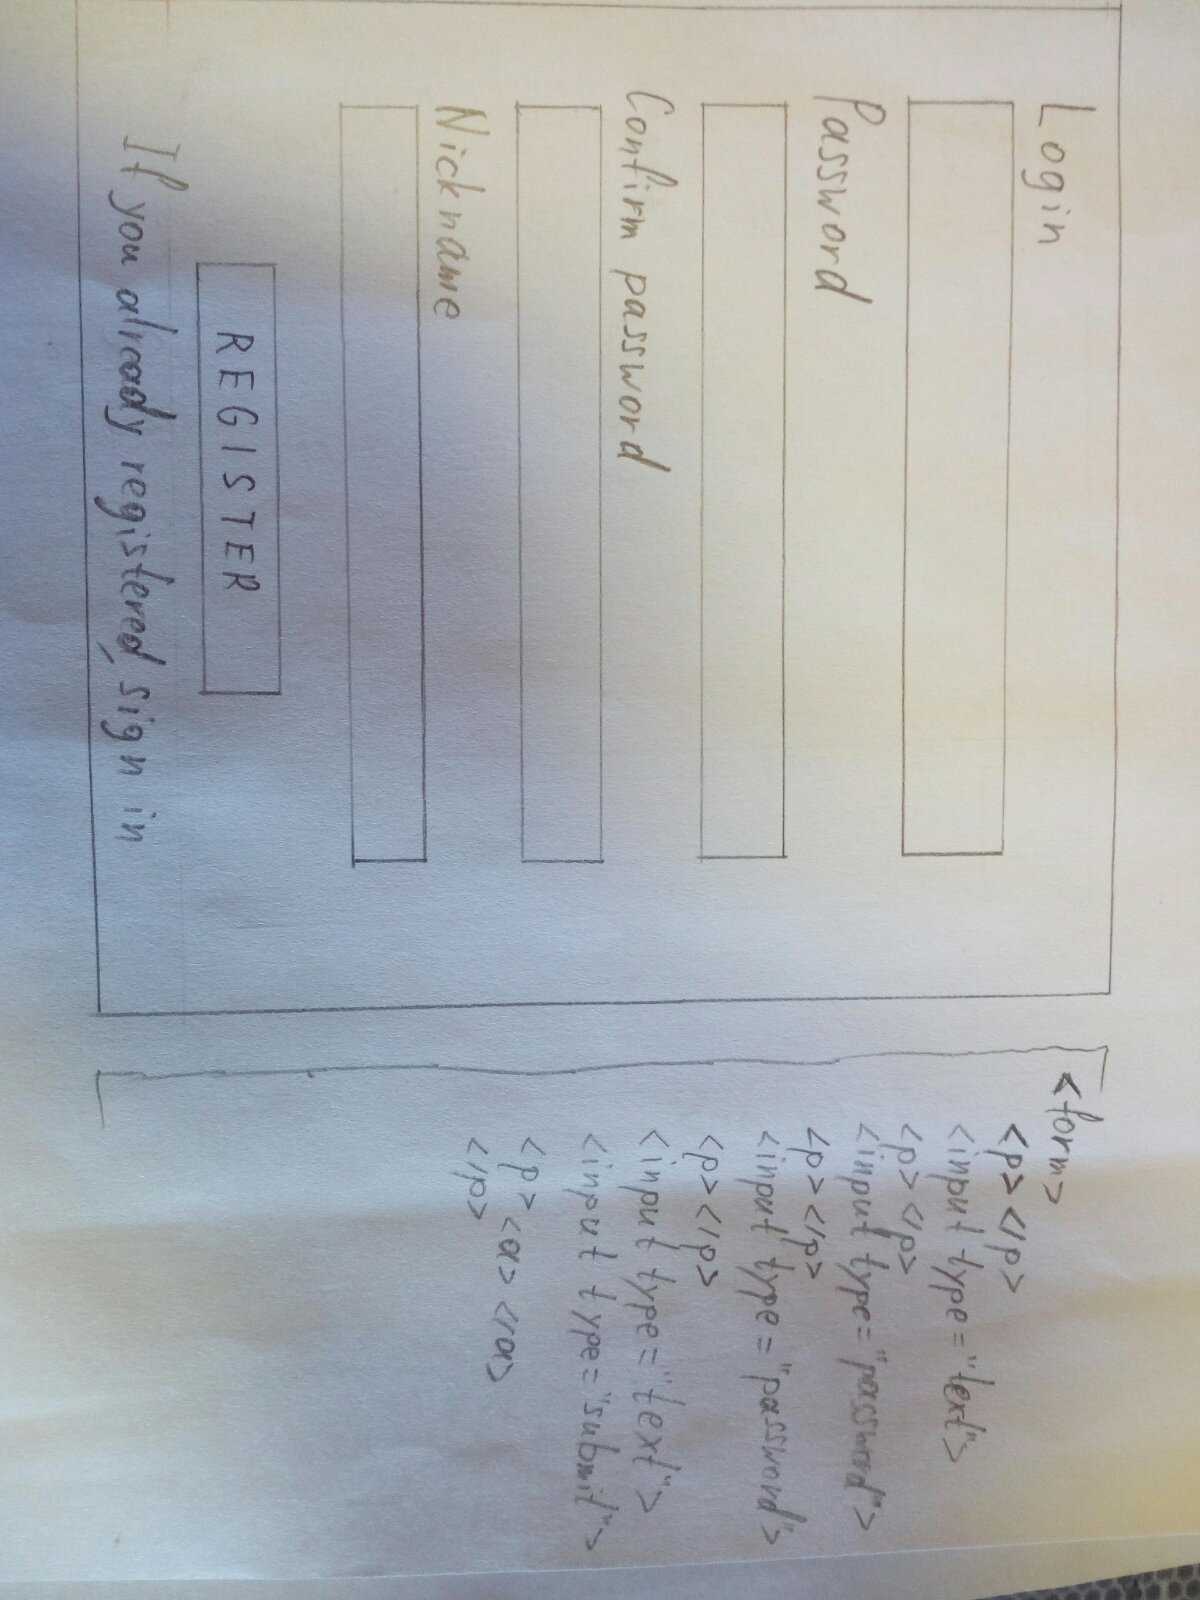 Login
Password
Confirm password
Nickname
REGISTER
If you already registered, sign in
<form>
<p></p>
<input type="text">
<p></p>
<input type="password">
<p></p>
<input type="password">
<p></p>
<input type="text">
<input type="submit">
<p><a></a>
</p>